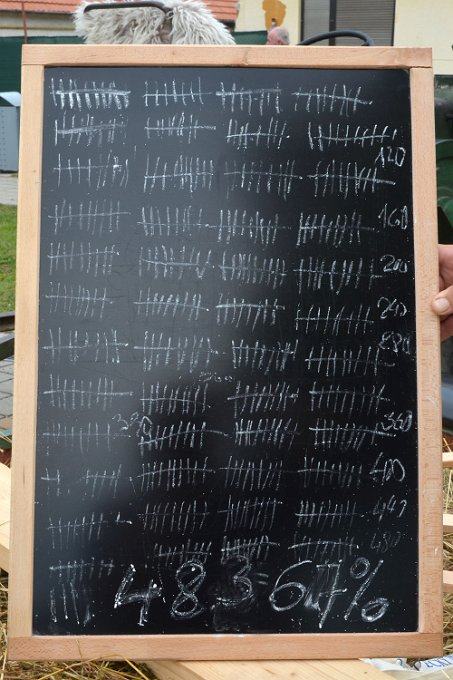 120
160
200
240
280
320
360
400
440
480
483=64%